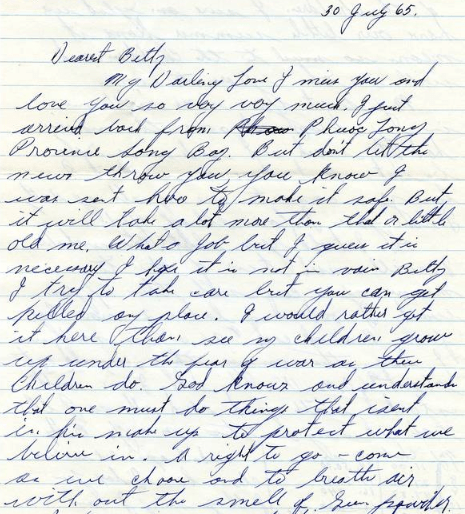 30 July 65.
Dearest Betty
My Darling Love I miss you and
love you so very very much. I just
arrived back from Phuoc Long
Provence Song Bay. But don't let the
news throw you, you know I
was sent here to make it safe. But
it will take a lot more than that or little
old me. What a job but I guess it is
necessary I hope it is not in vain Betty
I try to take care but you can get
killed any place. I would rather get
it here than see my children grow
up under the fear of war as these
Children do. God knows and understands
that one must do things that isent
in his make up to protect what we
believe in. A right to go - come
as we choose and to breath air
with out the smell of Gun powder.